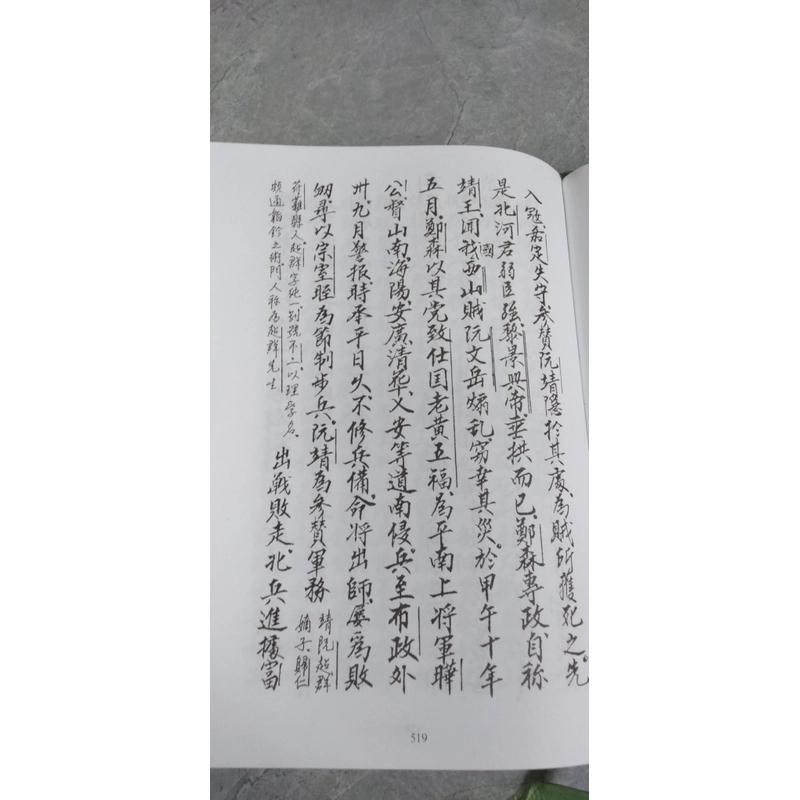 入寇君定失守參贊阮靖隱於其處為賊所獲死之先
是北河君弱臣強黎景興帝垂拱而已鄭森專政自称
靖王聞我國西山賊阮文岳煽乱窃幸其災於甲午十年
五月鄭森以其党致仕国老黃五福為平南上將軍曄
公督山南海陽安廣清華乂安等道南侵兵至布政外
卅九月警报時承平日久不修兵備命將出師屡為敗
衂尋以宗室晊為節制步兵阮靖為參贊軍務靖阮超群
嫡子歸仁
符離縣人超群字純一別號不二以理學名
頻通韜鈐之術門人称為超群先生
出戰敗走北兵進據富
519